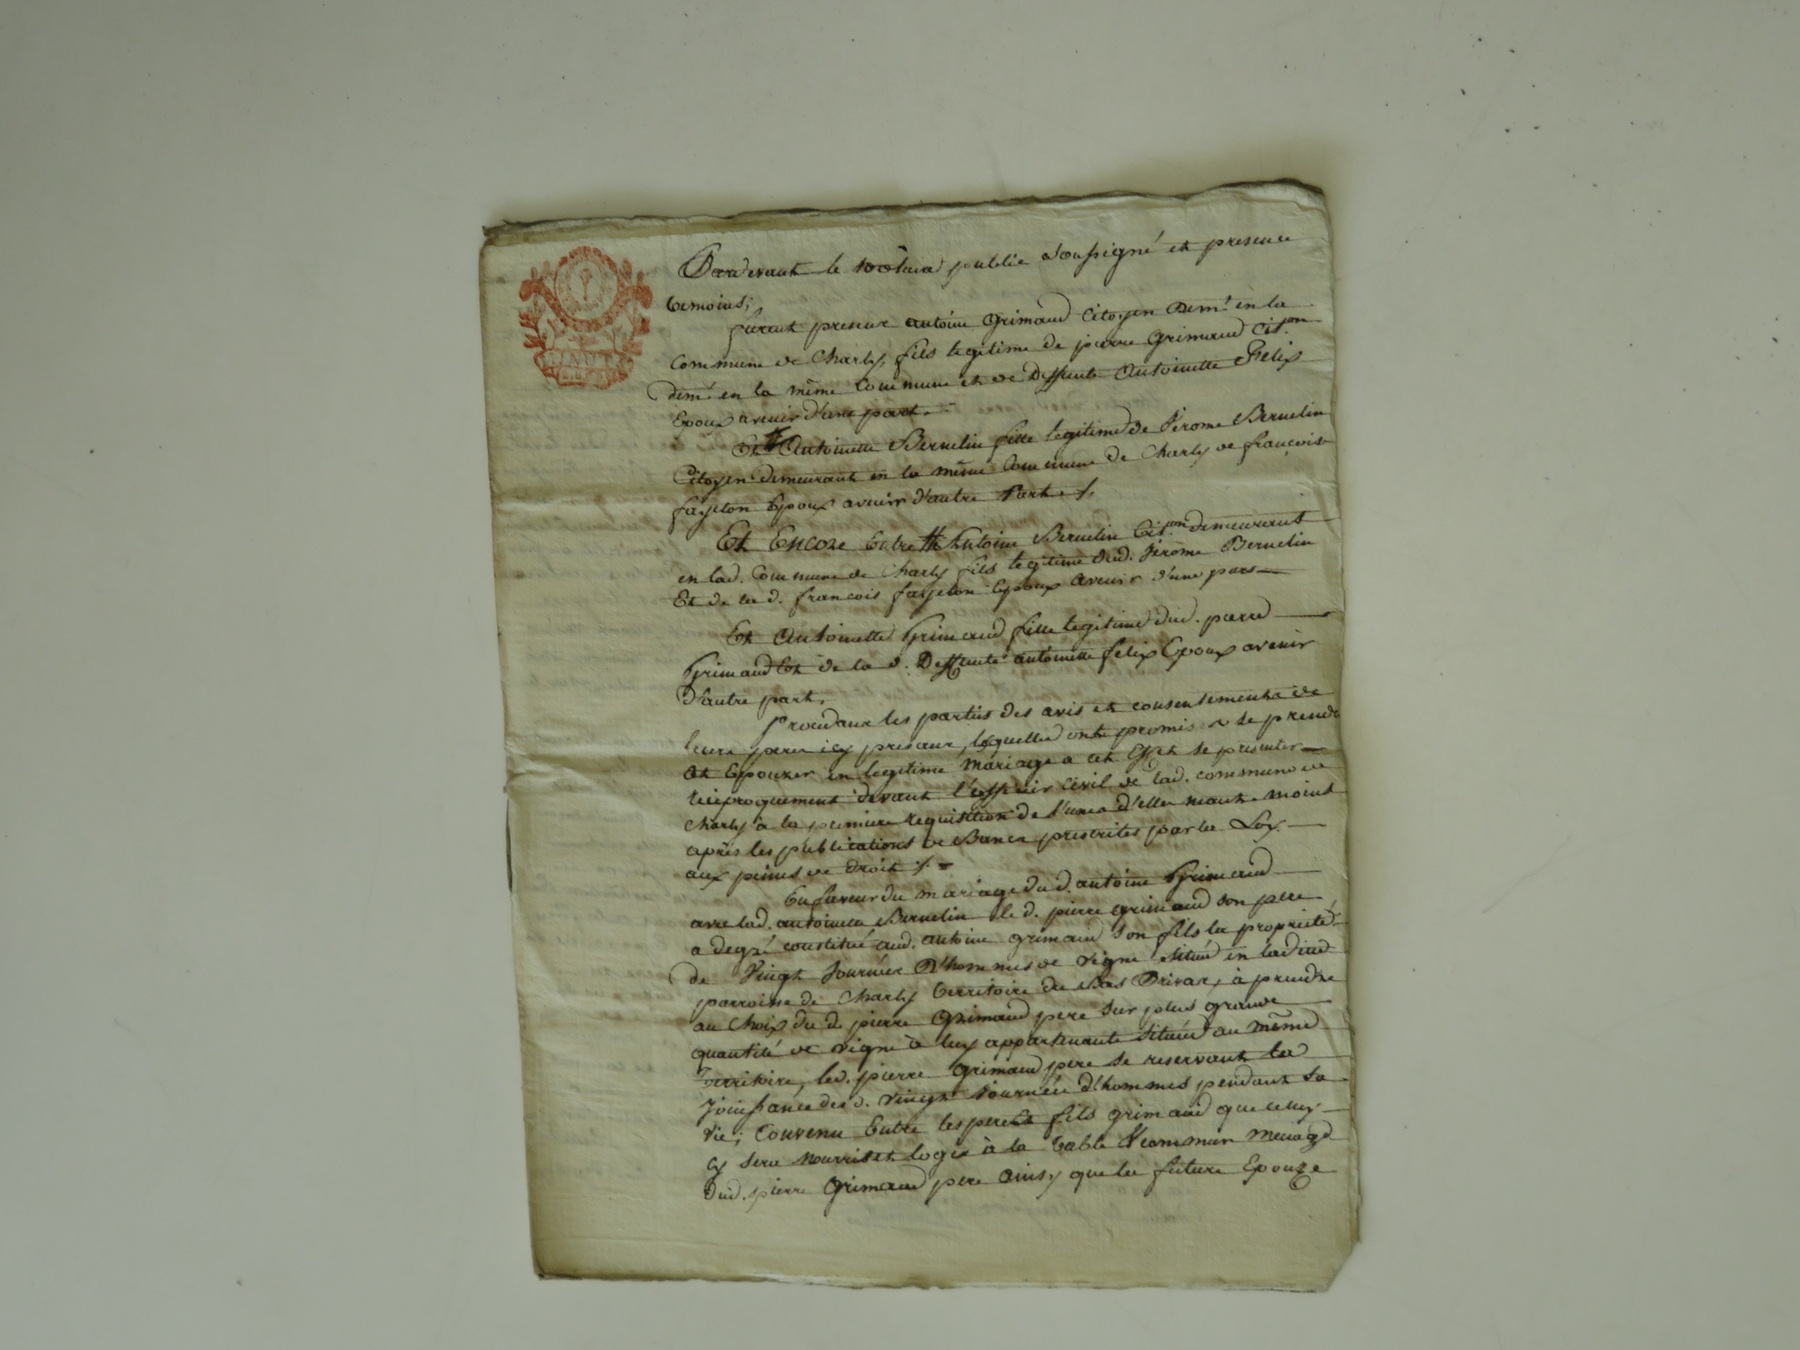 Pardevant le notaire public soussigné et presence
temoins;
furent presens antoine Grimaud Citoyen Dem.t en la
Commune de Charly, fils legitime de pierre Grimaud Cit.yen
dem.t en la même Commune et de Deffunte Antoinette Felix
Epoux avenir d'une part.
Et Antoinette Bernelin fille legitime de Jérome Bernelin
Citoyen demeurant en la même Commune de Charly et françoise
fayelon Epoux avenir d'autre Part ./.
Et Encore Entre Antoine Bernelin Cit.yen demeurant
en lad. Commune de Charly fils legitime dud. Jérôme Bernelin
Et de la d. francois fayelon Epoux avenir d'une part
Et Antoinette Grimaud fille legitime dud. pierre
Grimaud Et de la d. Deffunte antoinette felix Epoux avenir
d'autre part.
Procedant les parties des avis et consentements de
leurs peres icy presens, lesquelles ont promis de se prendre
et Epouzer en legitime mariage a cet Effet se presenter
réciproquement devant l'officier Civil de lad. commune de
Charly à la premiere requisition de l'une d'elles néant moins
après les publications de Bancs prescrites par la Loy
aux peines de droit ./.
En faveur du mariage du d. antoine Grimaud
avec lad. antoinette Bernelin le d. pierre Grimaud son pere
a degré constitué aud. antoine Grimaud son fils la propriété
de Vingt Journées D'hommes de vigne située en ladite
parroisse de Charly territoire du Bas Privas, à prendre
au Choix du d. pierre Grimaud pere sur plus grande
quantité de vigne à luy appartenante située au même
Territoire, led. pierre Grimaud pere se reservant la
Jouissance des d. vingt Journées d'hommes pendant sa
vie; Convenu Entre les pere et fils Grimaud que celuy
cy sera nourri et logé à la table & commun menage
dud. pierre Grimaud pere ainsy que la future Epouze